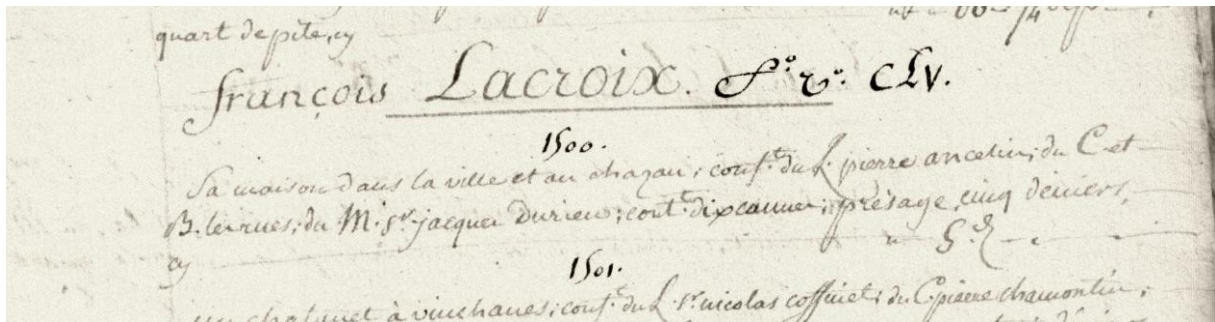 quart de pite, cy
françois Lacroix. f.º v.º CLV.
1500.
Sa maison dans la ville et au chazau; conf.t du L. pierre ancelin; du C. et
B. les rues; du M. s.r jacques Durieu; cont.t dix cannes; présage, cinq déniers,
cy 5.d
1501.
à vinchanes; conf.t du L. s.r nicolas coffinet; du C. pierre chamontin;